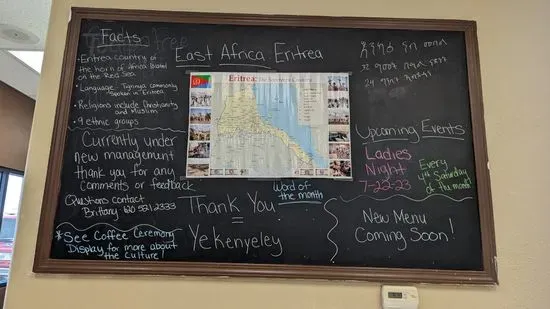 Facts
• Eritrea country of
the horn of Africa located
on the Red Sea
• Language Tigrinya commonly
spoken in Eritrea
• Religions include Christianity
and Muslim
• 9 ethnic groups
Currently under
new management
thank you for any
comments or feedback
Questions contact
Brittany 521.2333
*See Coffee Ceremony
Display for more about
the culture!
East Africa Eritrea
Eritrea: The Southern Country
Word of
the month
Thank You
=
Yekenyeley
ናብ መበል
32 ዓመት በዓል ናጽነት
24
Upcoming Events
Ladies
Night
7-22-23
Every
4th Saturday
of the month!
New Menu
Coming Soon!